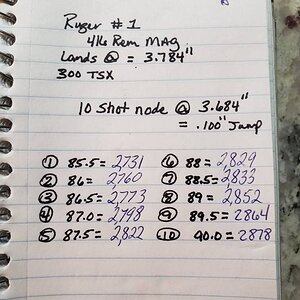 Ruger #1
416 Rem MAG
Lands @ = 3.784"
300 TSX
10 Shot node @ 3.684"
= .100" Jump
① 85.5 = 2731
② 86 = 2760
③ 86.5 = 2773
④ 87.0 = 2798
⑤ 87.5 = 2,822
⑥ 88 = 2,829
⑦ 88.5 = 2833
⑧ 89 = 2,852
⑨ 89.5 = 2864
⑩ 90.0 = 2878